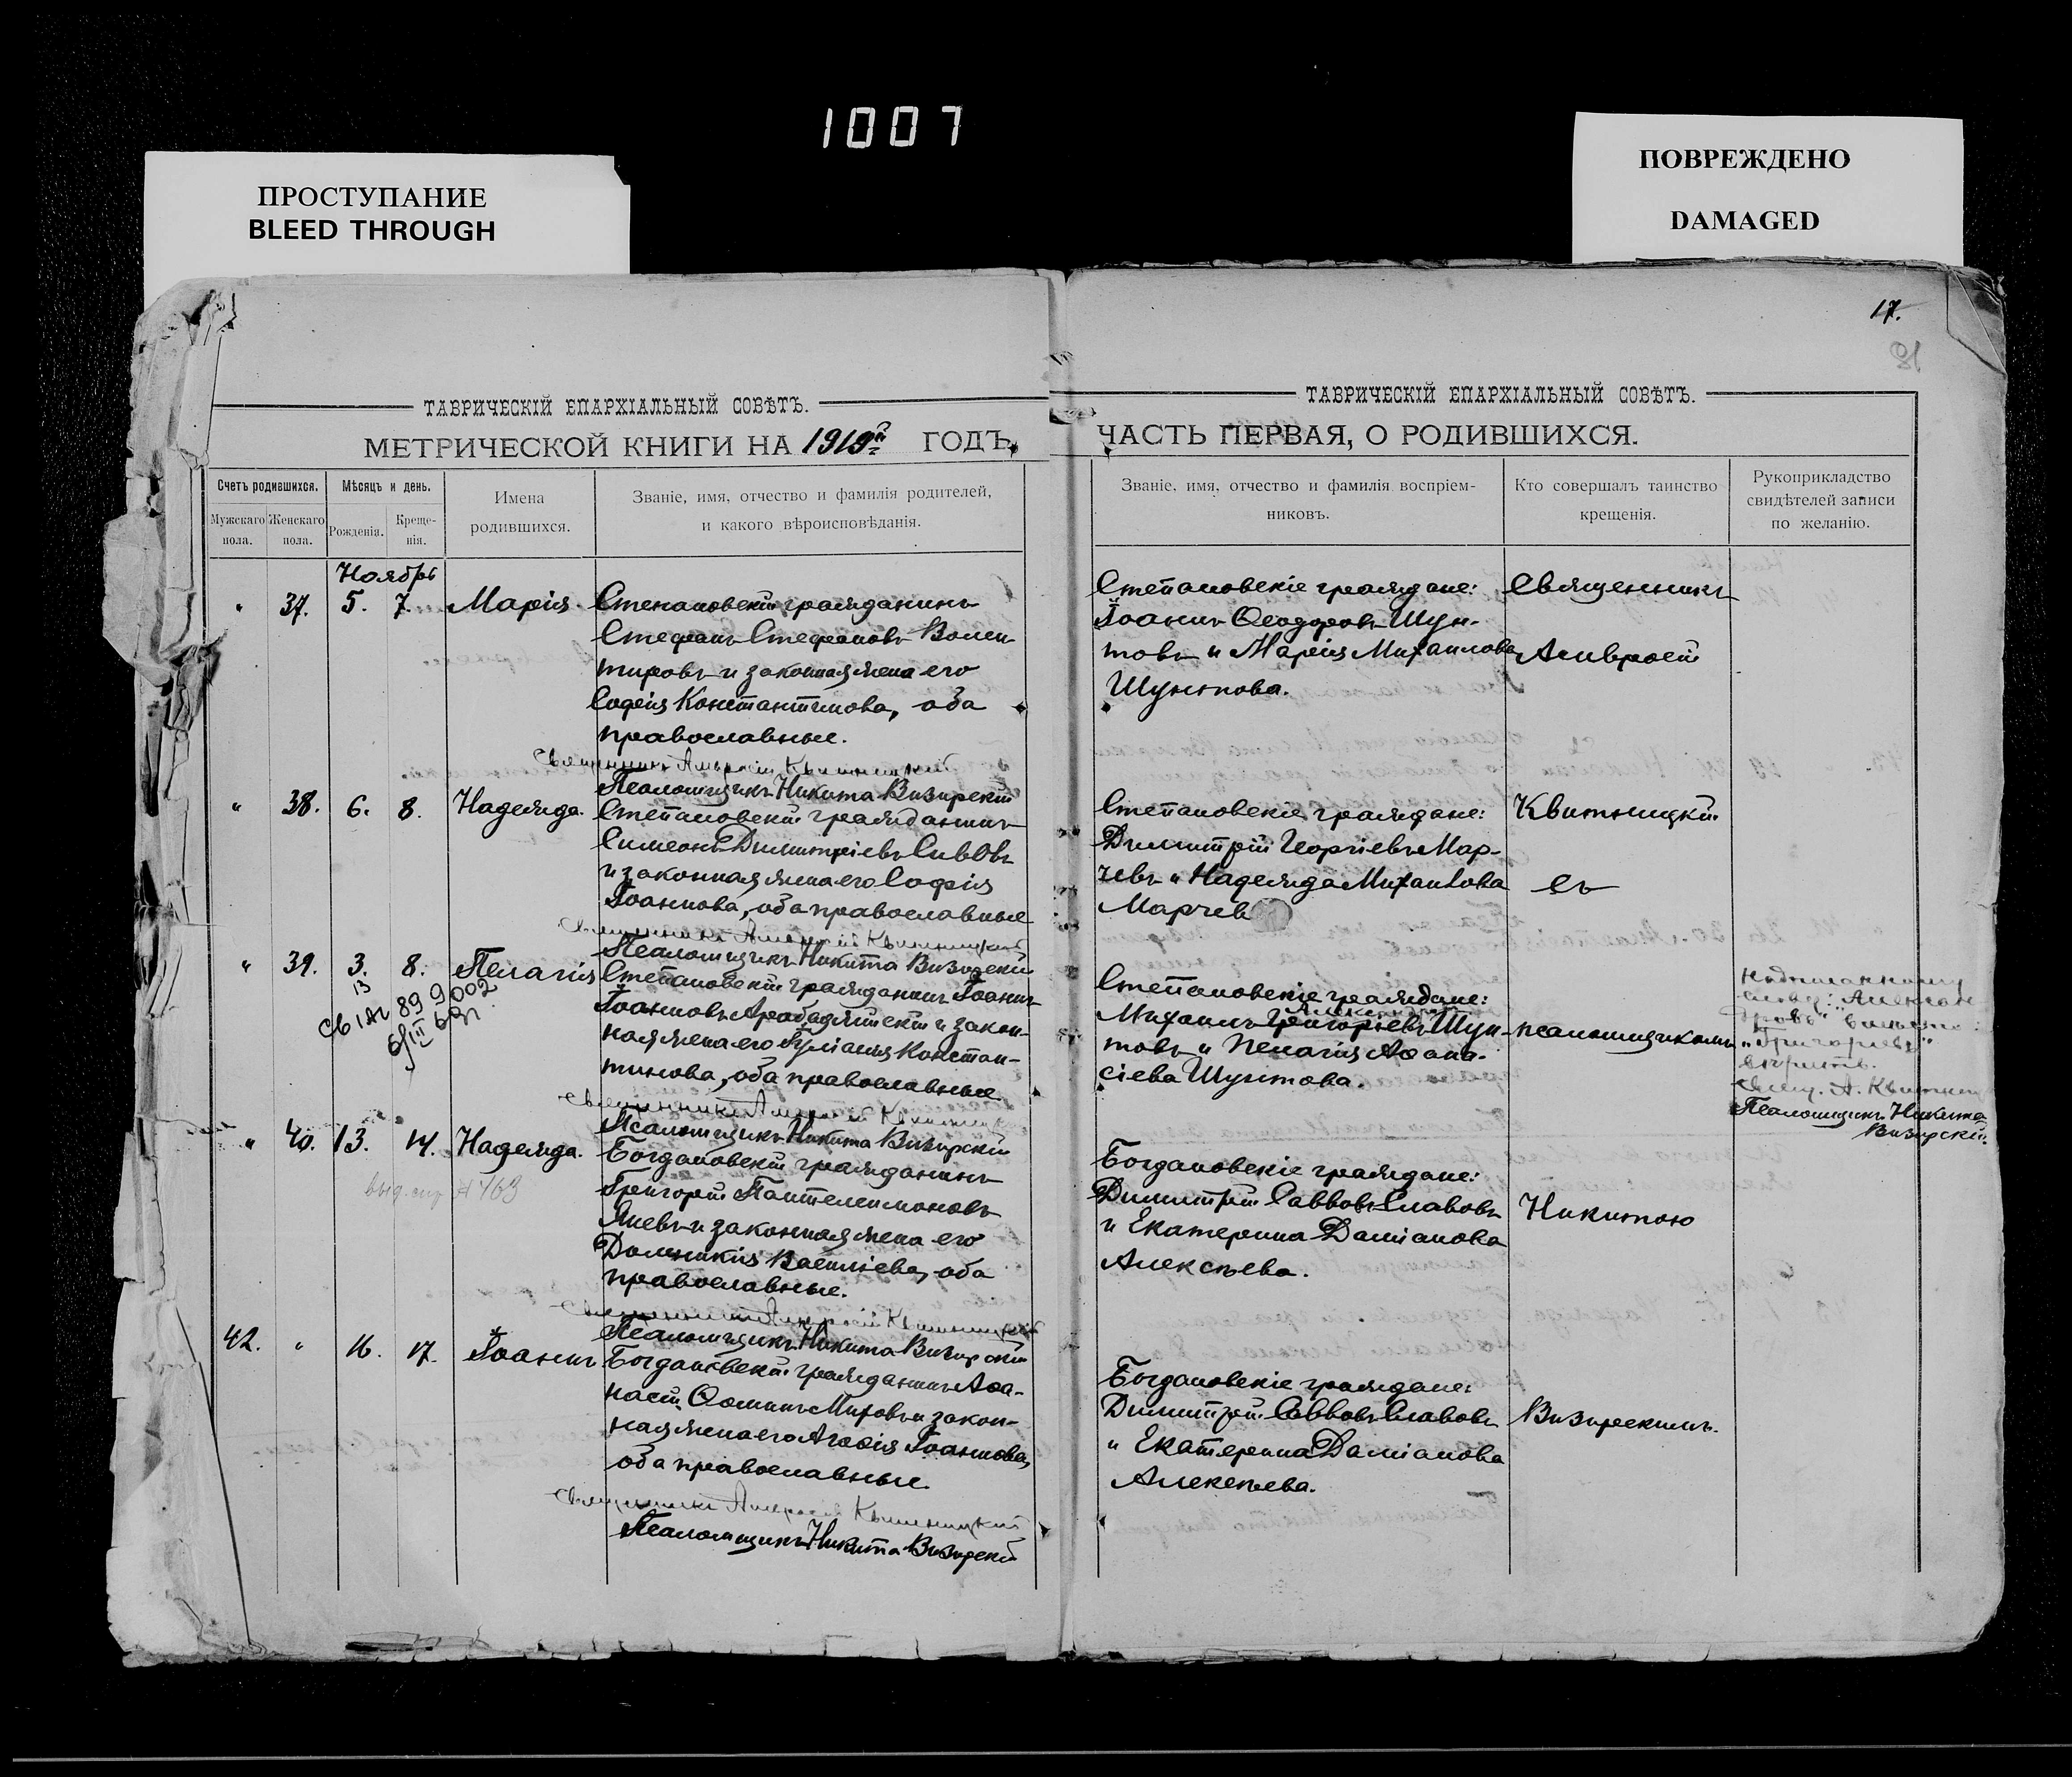 1007
ПРОСТУПАНИЕ
BLEED THROUGH
ПОВРЕЖДЕНО
DAMAGED
17.
ТАВРИЧЕСКІЙ ЕПАРХІАЛЬНЫЙ СОВѢТЪ.
МЕТРИЧЕСКОЙ КНИГИ НА 1919й ГОДЪ,
Счетъ родившихся.
Мужскаго пола.
Женскаго пола.
Мѣсяцъ и день.
Рожденія.
Креще-
нія.
Имена
родившихся.
Званіе, имя, отчество и фамилія родителей,
и какого вѣроисповѣданія.
Ноябрь
" 37. 5. 7. Марія.
Степановскій гражданинъ
Стефанъ Стефановъ Волон
тировъ и законная жена его
Софія Константинова, оба
православные.
Священникъ Амвросій Квитницкій
Псаломщикъ Никита Визирскій
" 38. 6. 8. Надежда.
Степановскій гражданинъ
Симеонъ Димитріевъ Сивовъ
и законная жена его Софія
Іоаннова, оба православные
Священникъ Амвросій Квитницкій
Псаломщикъ Никита Визирскій
" 39. 3. 8. Пелагія
13
Степановскій гражданинъ Іоаннъ
Іоанновъ Арабаджійскій и закон-
ная жена его Іуліанія Констан-
тинова, оба православные
Священникъ Амвросій Квитницкій
Псаломщикъ Никита Визирскій
" 40. 13. 14. Надежда.
Богдановскій гражданинъ
Григорій Пантелеимоновъ
Яневъ и законная жена его
Домникія Васильева, оба
православные.
Священникъ Амвросій Квитницкій
Псаломщикъ Никита Визирскій
42. " 16. 17. Іоаннъ
Богдановскій гражданинъ Аѳа-
насій Ѳоминъ Митовъ и закон-
ная жена его Агаѳія Іоаннова,
оба православные
Священникъ Амвросій Квитницкій
Псаломщикъ Никита Визирскій
ТАВРИЧЕСКІЙ ЕПАРХІАЛЬНЫЙ СОВѢТЪ.
ЧАСТЬ ПЕРВАЯ, О РОДИВШИХСЯ.
Званіе, имя, отчество и фамилія воспріем-
никовъ.
Кто совершалъ таинство
крещенія.
Рукоприкладство
свидѣтелей записи
по желанію.
Степановскіе граждане:
Іоаннъ Ѳеодоровъ Шун-
товъ и Марія Михаилова
Шунтова.
Священникъ
Амвросій
Степановскіе граждане:
Димитрій Георгіевъ Мар-
чевъ и Надежда Михаилова
Марчев
Квитницкій
съ
Степановскіе граждане:
Александровъ
Михаилъ Григоріевъ Шун-
товъ и Пелагія Аѳана-
сіева Шунтова.
псаломщикомъ
Надписанному
вѣрить.
Свящ. А. Квитниц
Псаломщикъ Никита
Визирскій.
Богдановскіе граждане:
Димитрій Саввовъ Славовъ
и Екатерина Даміанова
Алексѣева.
Никитою
Богдановскіе граждане:
Димитрій Саввовъ Славовъ
и Екатерина Даміанова
Алексѣева.
Визирскимъ.